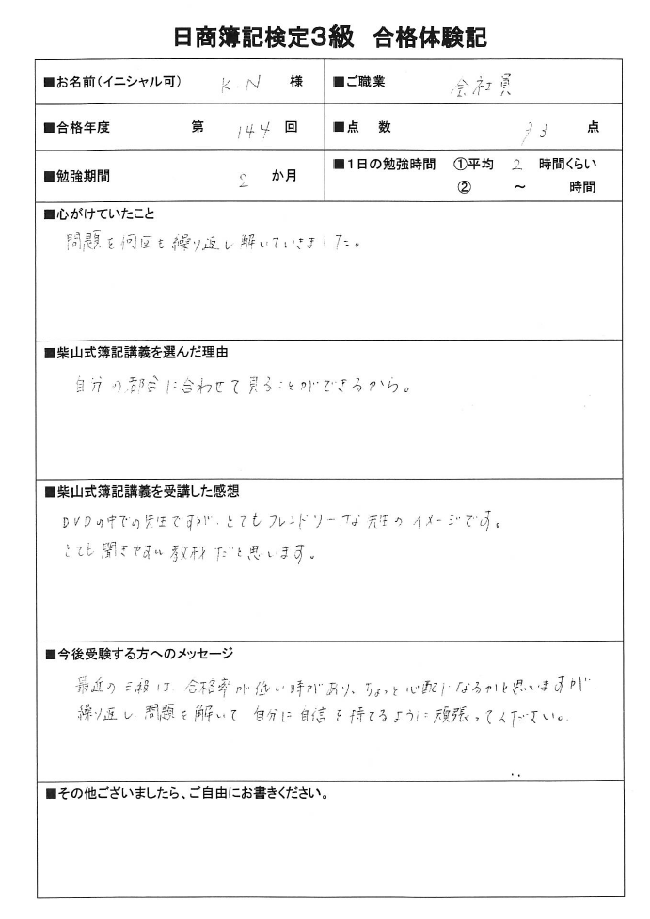 日商簿記検定3級　合格体験記
■お名前(イニシャル可)　K N　様
■ご職業　会社員
■合格年度　第　144　回
■点　数　93　点
■勉強期間　2　か月
■1日の勉強時間　①平均　2　時間くらい
②　～　時間
■心がけていたこと
問題を何回も繰り返し解いていきました。
■柴山式簿記講義を選んだ理由
自分の都合に合わせて見ることができるから。
■柴山式簿記講義を受講した感想
DVDの中での先生ですが、とてもフレンドリーな先生のイメージです。
とても聞きやすい教材だと思います。
■今後受験する方へのメッセージ
最近の三級は、合格率が低い時があり、ちょっと心配になるかと思いますが
繰り返し問題を解いて自分に自信を持てるように頑張ってください。
■その他ございましたら、ご自由にお書きください。